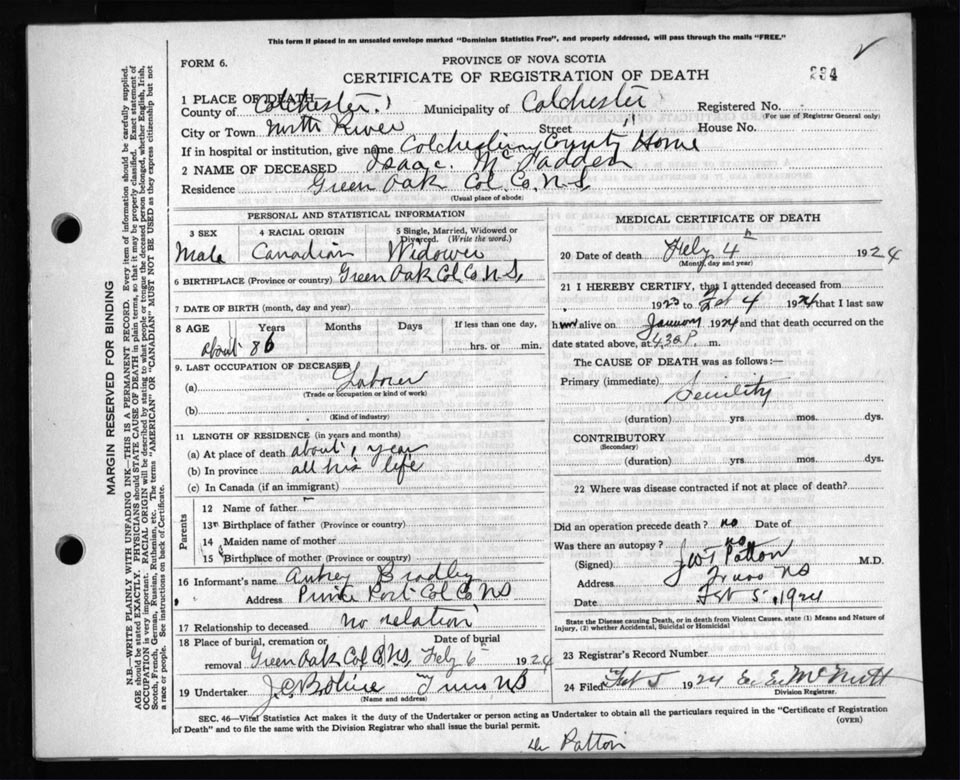 This form if placed in an unsealed envelope marked "Dominion Statistics Free", and properly addressed, will pass through the mails "FREE."
FORM 6.
PROVINCE OF NOVA SCOTIA
CERTIFICATE OF REGISTRATION OF DEATH
234
1 PLACE OF DEATH—
County of Colchester Municipality of Colchester Registered No.
(For use of Registrar General only)
City or Town North River Street " House No.
If in hospital or institution, give name County Home
2 NAME OF DECEASED Isaac McFadden
Residence Green Oak Col. Co. N.S.
(Usual place of abode)
PERSONAL AND STATISTICAL INFORMATION
3 SEX 4 RACIAL ORIGIN 5 Single, Married, Widowed or Divorced. (Write the word.)
Male Canadian Widower
6 BIRTHPLACE (Province or country) Green Oak Col Co N.S.
7 DATE OF BIRTH (month, day and year)
8 AGE Years Months Days If less than one day,
about 86 hrs. or min.
9. LAST OCCUPATION OF DECEASED
(a) Laborer
(Trade or occupation or kind of work)
(b)
(Kind of industry)
11 LENGTH OF RESIDENCE (in years and months)
(a) At place of death about 1 year
(b) In province all his life
(c) In Canada (if an immigrant)
Parents
12 Name of father
13 Birthplace of father (Province or country)
14 Maiden name of mother
15 Birthplace of mother (Province or country)
16 Informant's name Bradley
Address Col Co NS
17 Relationship to deceased no relation
18 Place of burial, cremation or removal Green Oak Col Co N.S. Date of burial Feby 6 1924
19 Undertaker Truro NS
(Name and address)
MEDICAL CERTIFICATE OF DEATH
20 Date of death Feby 4th 1924
(Month, day and year)
21 I HEREBY CERTIFY, that I attended deceased from
1923 to Feb 4 1924 that I last saw
h im alive on January 1924 and that death occurred on the
date stated above, at 430 P. m.
The CAUSE OF DEATH was as follows:—
Primary (immediate) Senility
(duration) yrs. mos. dys.
CONTRIBUTORY
(Secondary)
(duration) yrs. mos. dys.
22 Where was disease contracted if not at place of death?
Did an operation precede death? no Date of
Was there an autopsy? no
(Signed) Patton M.D.
Address Truro NS
Date Feb 5. 1924
State the Disease causing Death, or in death from Violent Causes, state (1) Means and Nature of Injury, (2) whether Accidental, Suicidal or Homicidal
23 Registrar's Record Number
24 Filed Feb 5 1924 McNutt
Division Registrar.
SEC. 46—Vital Statistics Act makes it the duty of the Undertaker or person acting as Undertaker to obtain all the particulars required in the "Certificate of Registration
of Death" and to file the same with the Division Registrar who shall issue the burial permit.
(OVER)
Dr Patton
MARGIN RESERVED FOR BINDING
N.B.—WRITE PLAINLY WITH UNFADING INK—THIS IS A PERMANENT RECORD. Every item of information should be carefully supplied.
AGE should be stated EXACTLY. PHYSICIANS should STATE CAUSE OF DEATH in plain terms, so that it may be properly classified. Exact statement of
OCCUPATION is very important. RACIAL ORIGIN will be described by stating to what people or tongue the deceased person belonged, whether English, Irish,
Scotch, French, German, Russian, Ruthenian, etc. The terms "AMERICAN" or "CANADIAN" MUST NOT BE USED as they express citizenship but not
a race or people. See instructions on back of Certificate.